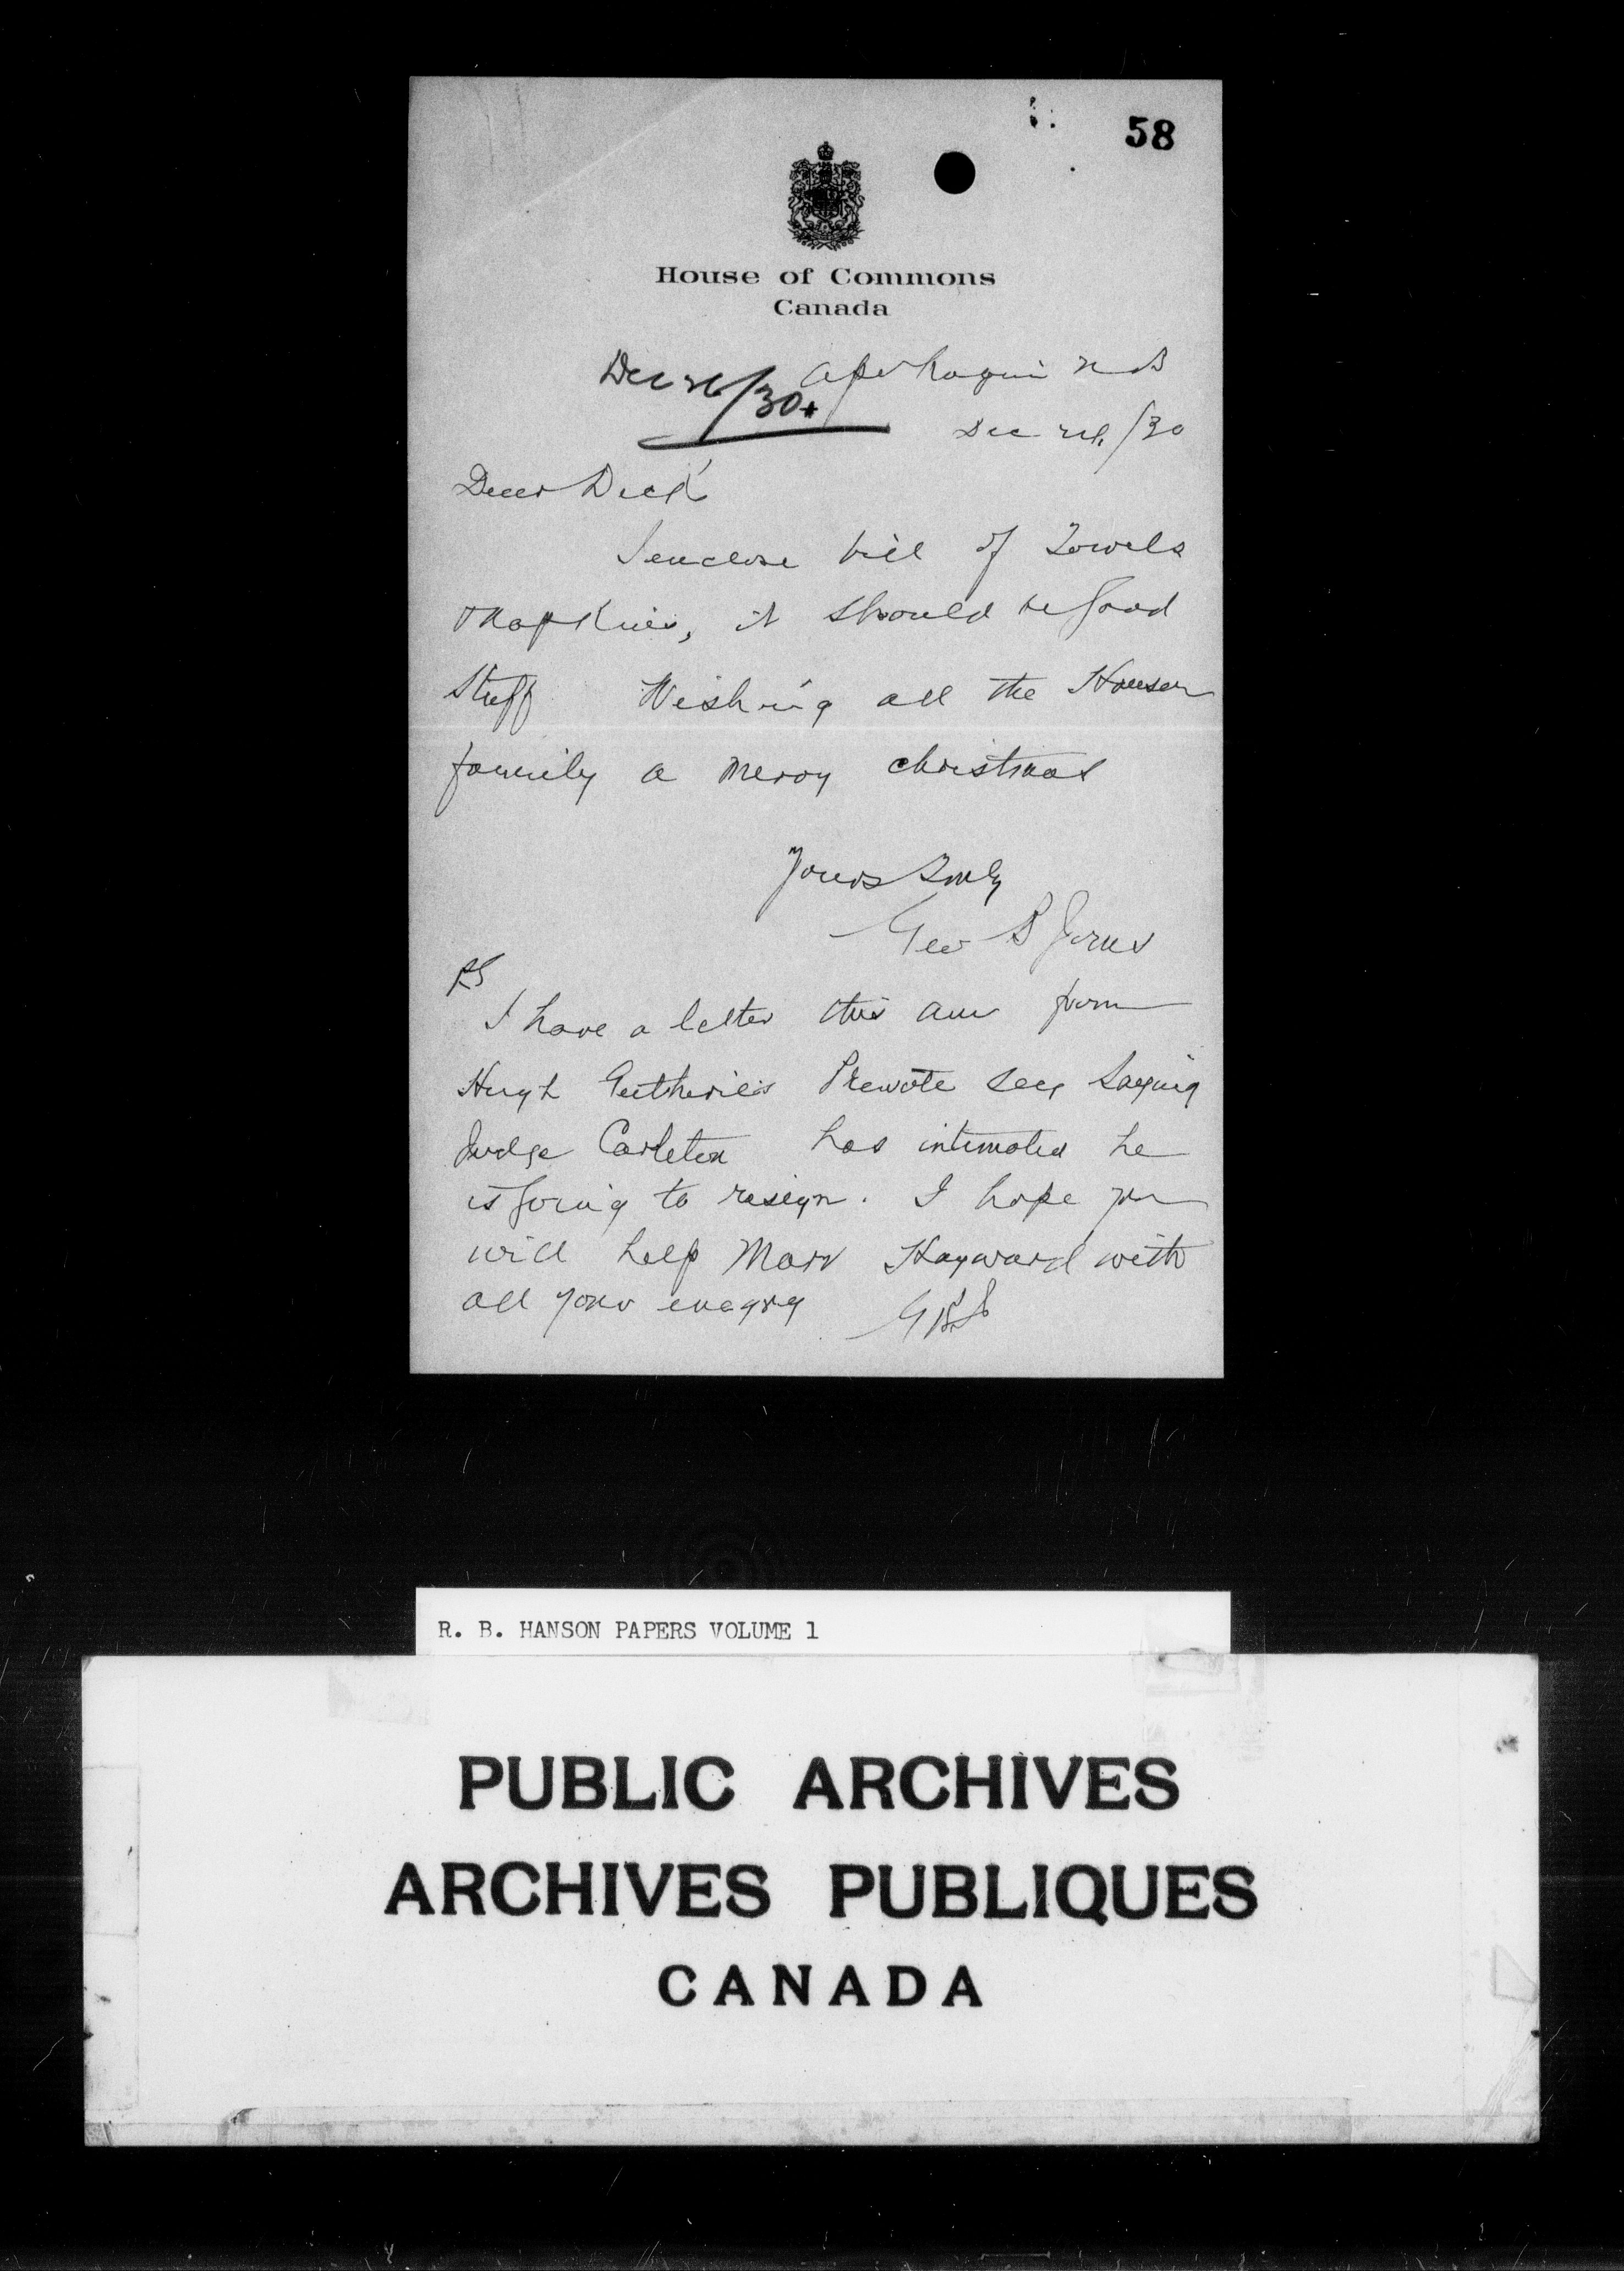 58
House of Commons
Canada
Dec 26/30
Apohaqui NB
Dec 24/30
Dear Dick
I enclose bill of Towels
& Napkins, it should be good
stuff Wishing all the Hanson
family a merry christmas
Yours Truly
Geo B Jones
PS
I have a letter this am from
Hugh Guthries Private Secy Saying
Judge Carleton has intimated he
is going to resign. I hope you
will help Marr Hayward with
all your energy GBJ
R. B. HANSON PAPERS VOLUME 1
PUBLIC ARCHIVES
ARCHIVES PUBLIQUES
CANADA